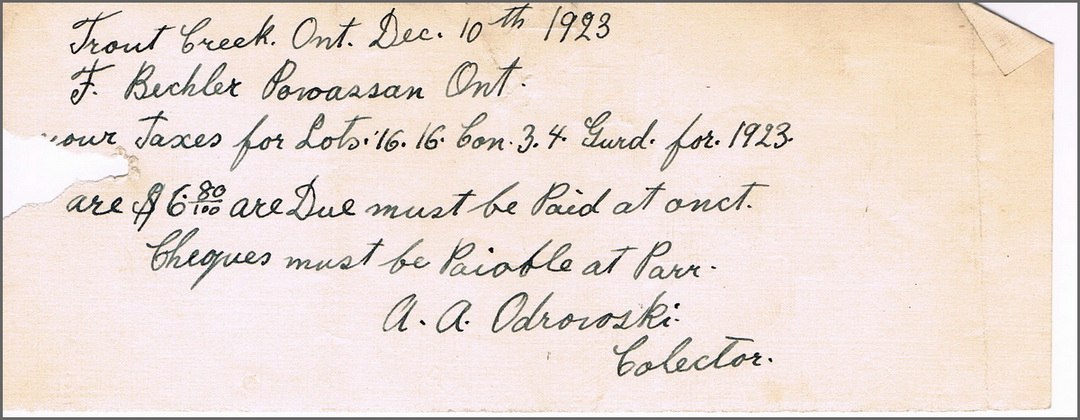 Trout Creek. Ont. Dec. 10th 1923
F. Bechler Powassan Ont.
your Taxes for Lots. 16. 16. Con. 3. 4. Gurd. for. 1923.
are $6 80/100 are Due must be Paid at onct.
Cheques must be Paiable at Parr.
A. A. Odrowski.
Colector.